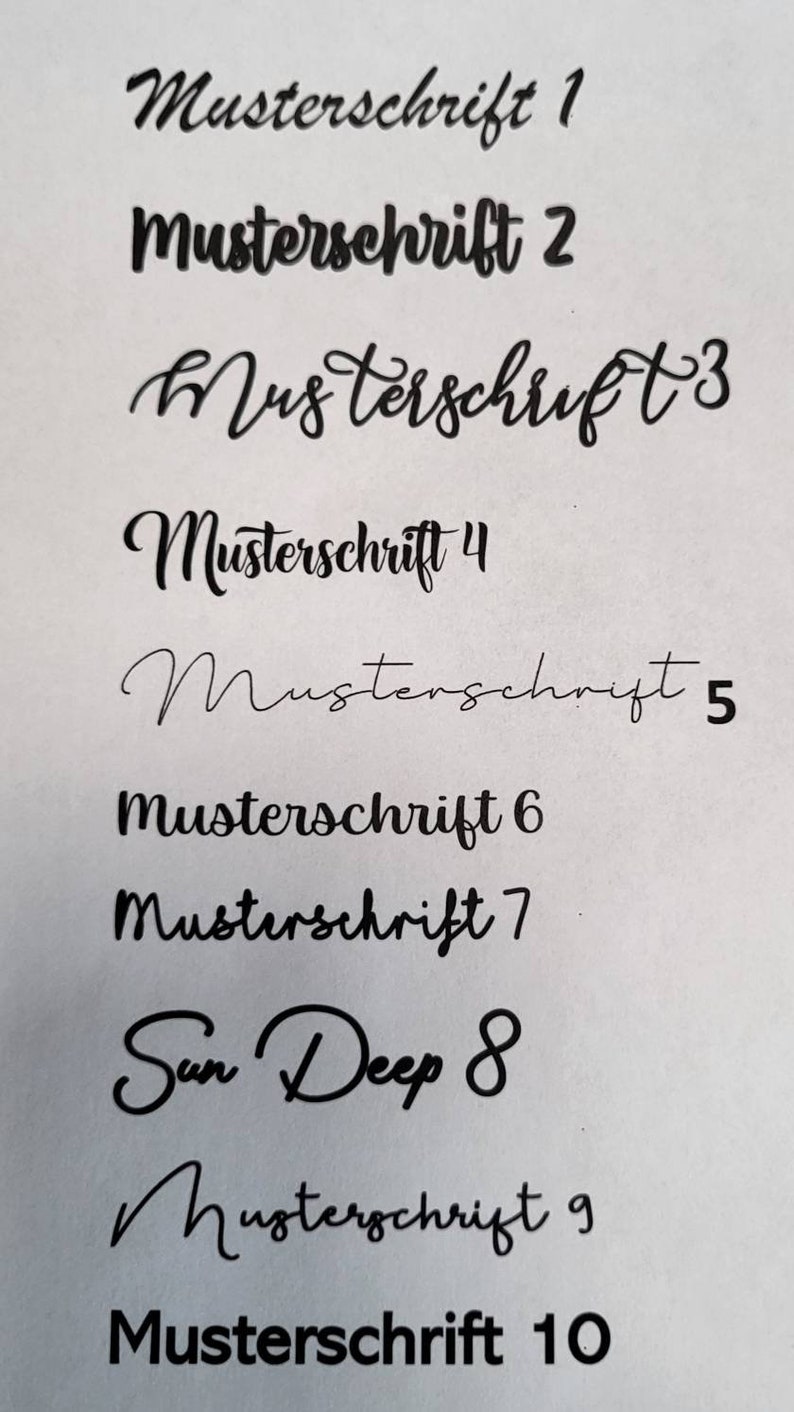 Musterschrift 1
Musterschrift 2
Musterschrift 3
Musterschrift 4
Musterschrift 5
Musterschrift 6
Musterschrift 7
Sun Deep 8
Musterschrift 9
Musterschrift 10